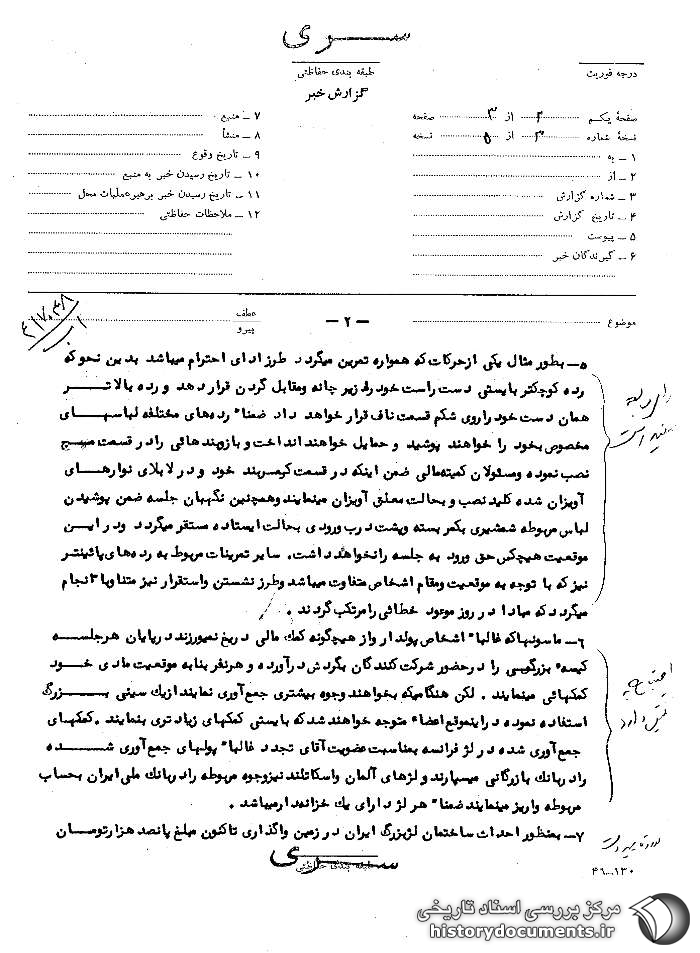 سری
طبقه بندی حفاظتی
درجه فوریت
گزارش خبر
صفحهٔ یکم ۲ از ۳ صفحه
نسخهٔ شماره ۳ از ۵ نسخه
۱ ـ به
۲ ـ از
۳ ـ شماره گزارش
۴ ـ تاریخ گزارش
۵ ـ پیوست
۶ ـ گیرندگان خبر
۷ ـ منبع
۸ ـ منشأ
۹ ـ تاریخ وقوع
۱۰ ـ تاریخ رسیدن خبر به منبع
۱۱ ـ تاریخ رسیدن خبر برهبر عملیات محل
۱۲ ـ ملاحظات حفاظتی
موضوع
ـ ۲ ـ
عطف
پیرو
۵ـ بطور مثال یکی از حرکات که همواره تمرین میگردد طرز ادای احترام میباشد بدین نحو که
رده کوچکتر بایستی دست راست خود را زیر چانه و مقابل گردن قرار دهد و رده بالاتر
همان دست خود را روی شکم قسمت ناف قرار خواهد داد ضمناً رده‌های مختلفه لباسهای
مخصوص بخود را خواهند پوشید و حمایل خواهند انداخت و بازوبندهائی را در قسمت مچ
نصب نموده و مسئولان کمیته‌مالی ضمن اینکه در قسمت کمربند خود و در لابلای نوارهای
آویزان شده کلید نصب و بحالت معلق آویزان مینمایند و همچنین نگهبان جلسه ضمن پوشیدن
لباس مربوطه شمشیری بکمر بسته و پشت درب ورودی بحالت ایستاده مستقر میگردد و در این
موقعیت هیچکس حق ورود به جلسه را نخواهد داشت. سایر تمرینات مربوط به رده‌های پائینتر
نیز که با توجه به موقعیت و مقام اشخاص متفاوت میباشد و طرز نشستن و استقرار نیز متناوباً انجام
میگردد که مبادا در روز موعود خطائی را مرتکب گردند .
۶ـ ماسونها که غالباً اشخاص پولدار و از هیچگونه کمک مالی دریغ نمیورزند در پایان هر جلسه
کیسه بزرگی را در حضور شرکت کنندگان بگردش درآورده و هر نفر بنا به موقعیت مادی خود
کمکهائی مینمایند . لکن هنگامیکه بخواهند وجوه بیشتری جمع‌آوری نمایند از یک سینی بزرگ
استفاده نموده در اینموقع اعضاء متوجه خواهند شد که بایستی کمکهای زیادتری بنمایند . کمکهای
جمع‌آوری شده در لژ فرانسه بمناسبت عضویت آقای تجدد غالباً پولهای جمع‌آوری شده
را در بانک بازرگانی میسپارند و لژهای آلمان و اسکاتلند نیز وجوه مربوطه را در بانک ملی ایران بحساب
مربوطه واریز مینمایند ضمناً هر لژ دارای یک خزانه‌دار میباشد .
۷ـ بمنظور احداث ساختمان لژ بزرگ ایران در زمین واگذاری تاکنون مبلغ پانصد هزار تومان
سری
طبقه بندی حفاظتی
مرکز بررسی اسناد تاریخی
historydocuments.ir